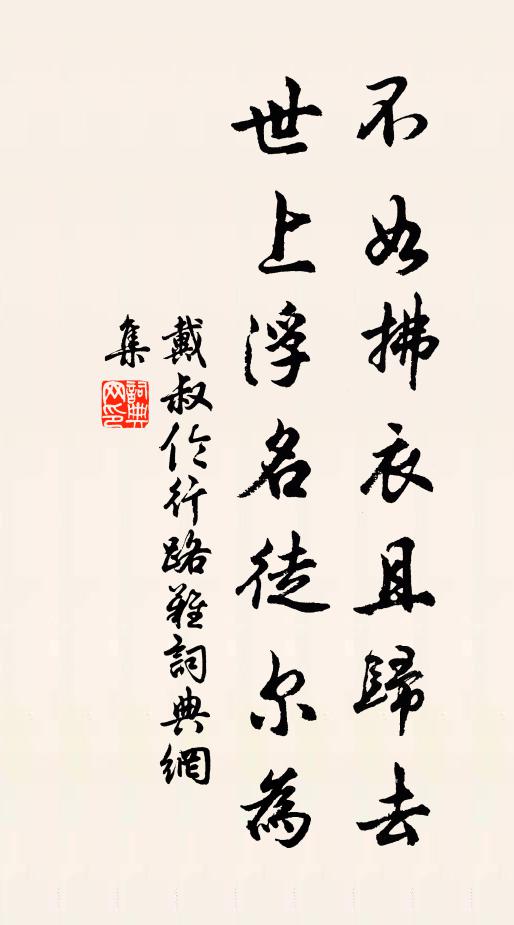 不如拂衣且歸去
世上浮名徒尔為
戴叔伦行路難詞典網
集
詞典網印